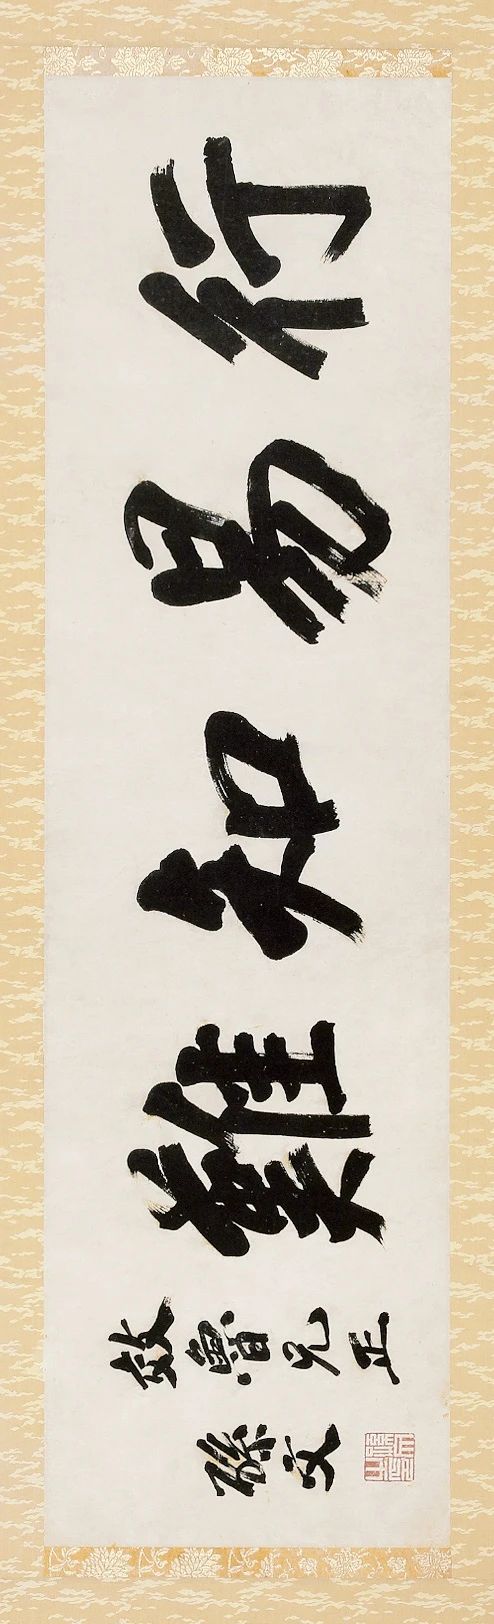 行易知難
效魯兄正
孫文